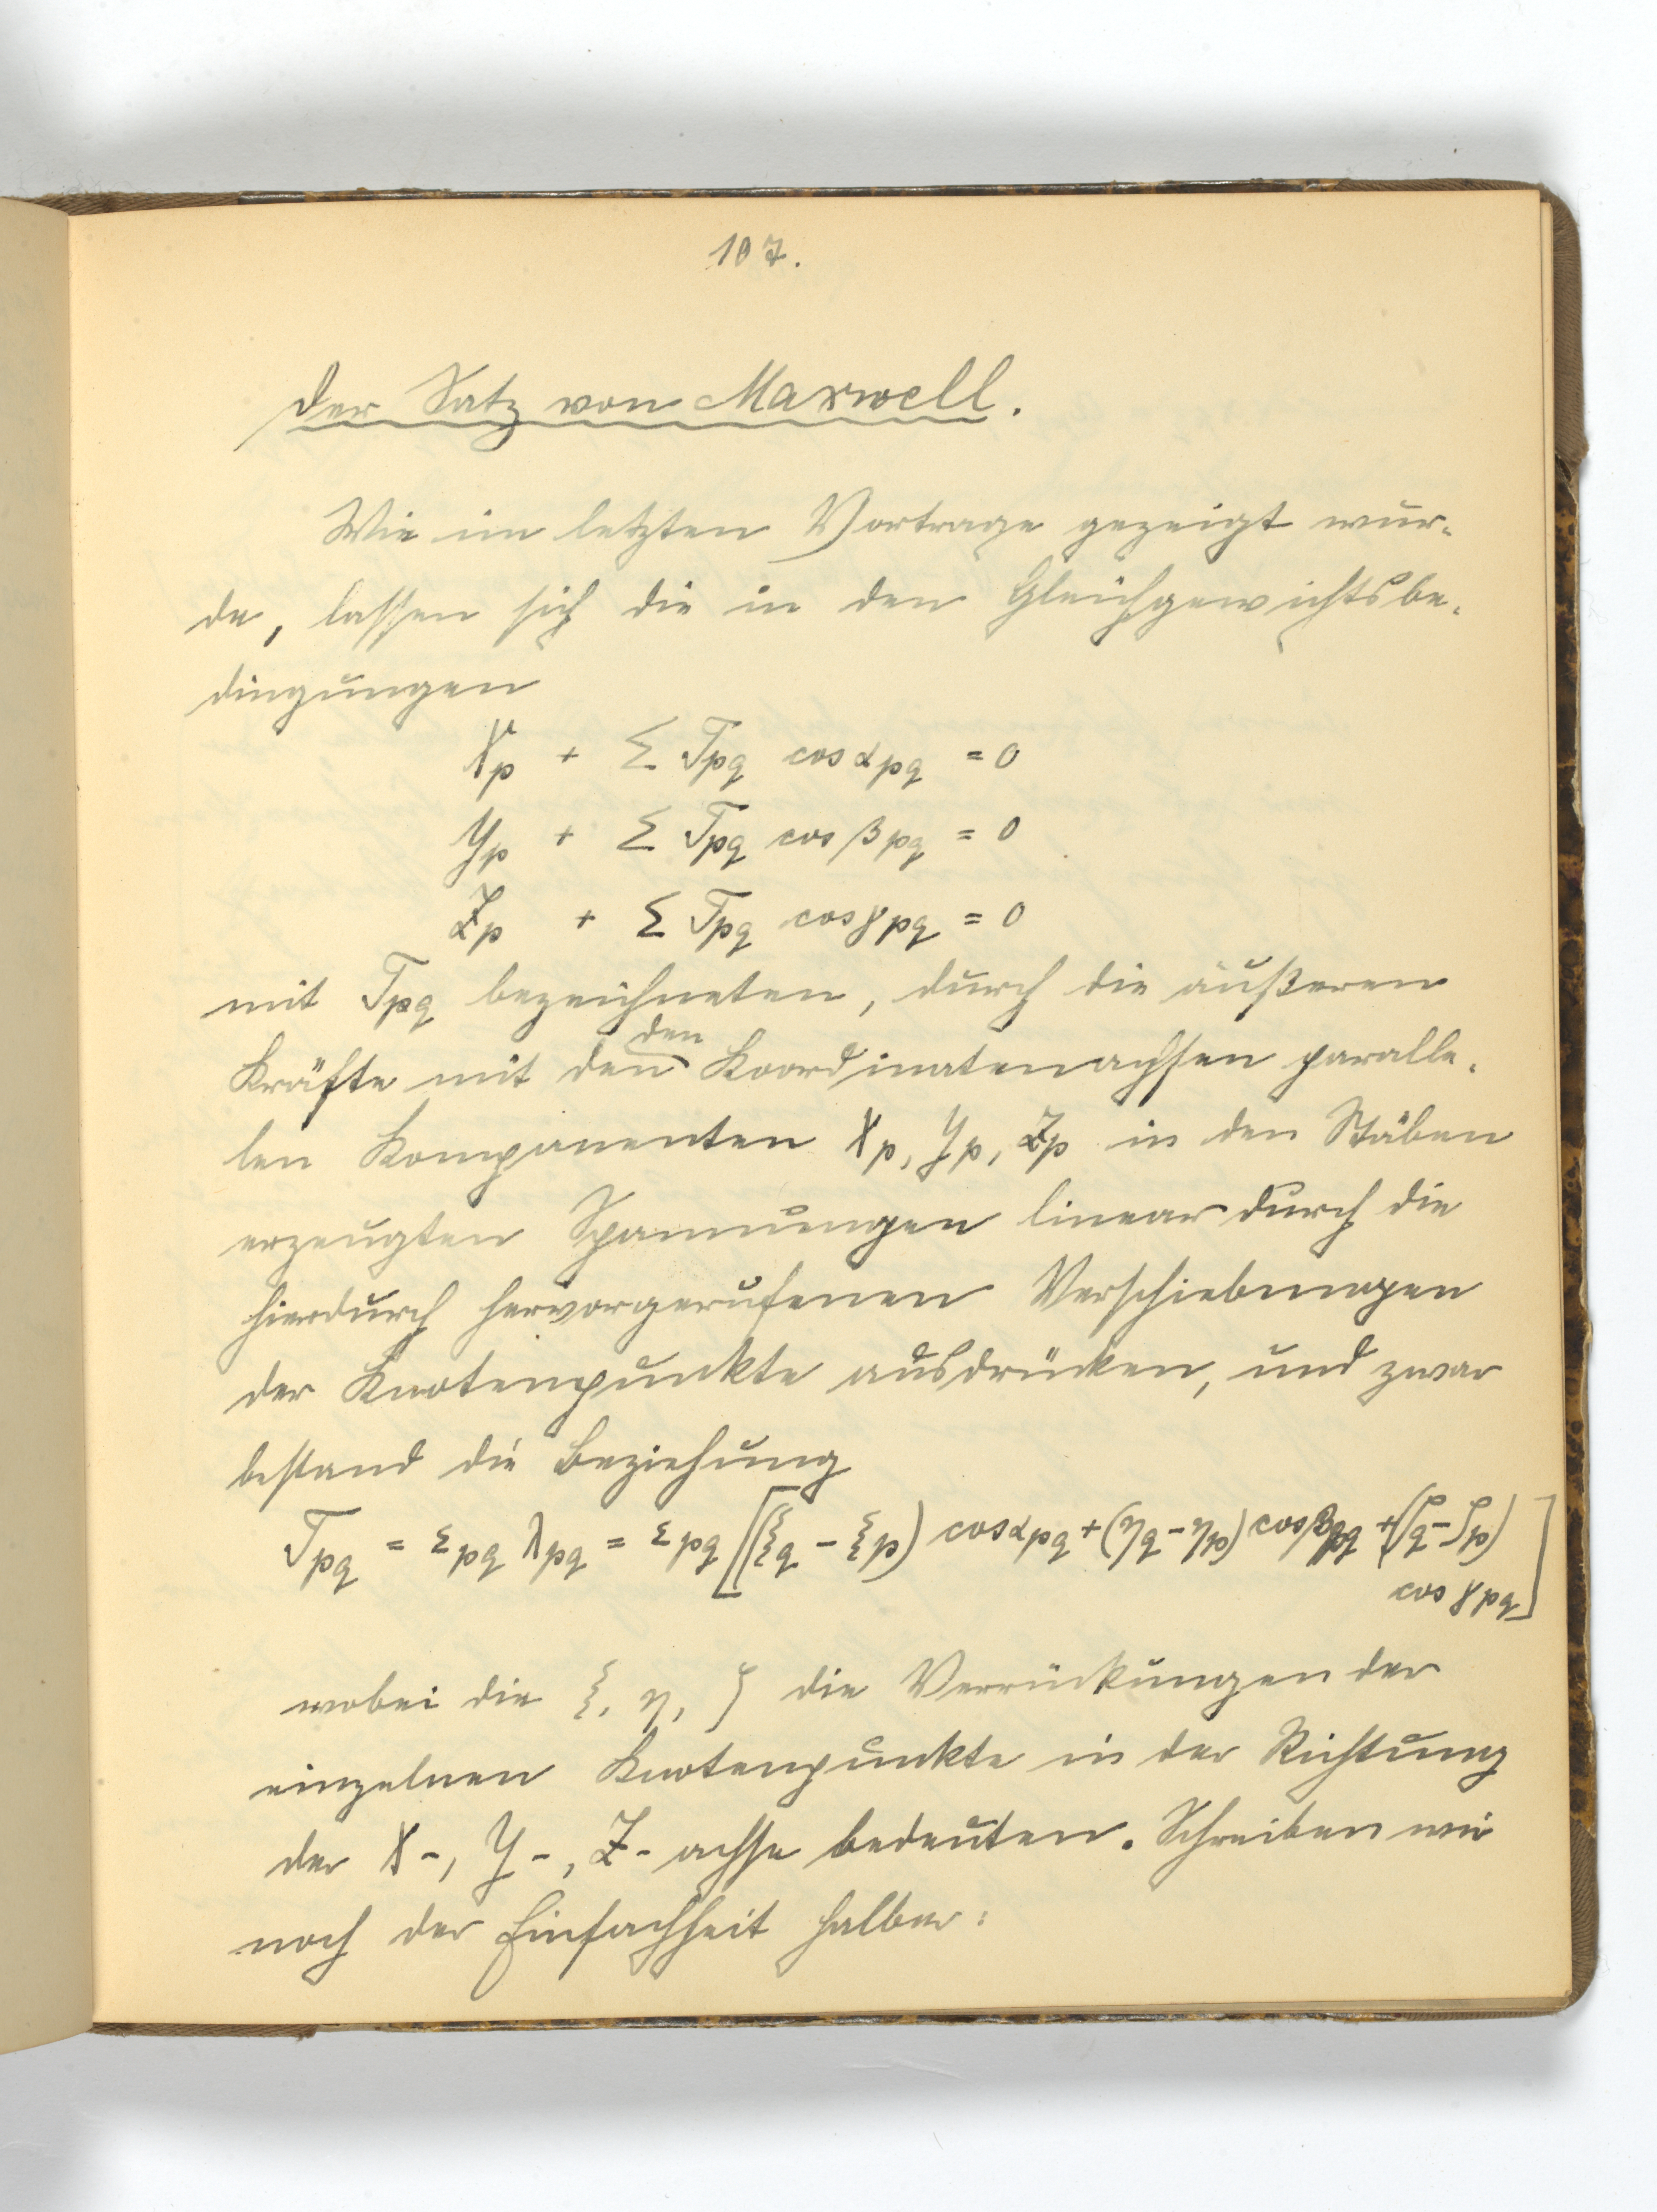 107.
Der Satz von Maxwell.
Wie im letzten Vortrage gezeigt wur-
de, lassen sich die in den Gleichgewichtsbe-
dingungen
Xp + Σ Tpq cos αpq = 0
Yp + Σ Tpq cos βpq = 0
Zp + Σ Tpq cos γpq = 0
mit Tpq bezeichneten, durch die äußeren
den
Kräfte mit den Koordinatenachsen paralle-
len Komponenten Xp, Yp, Zp in den Stäben
erzeugten Spannungen linear durch die
hierdurch hervorgerufenen Verschiebungen
der Knotenpunkte ausdrücken, und zwar
bestand die Beziehung
Tpq = εpq λpq = εpq [(ξq - ξp) cos αpq + (ηq - ηp) cos βpq + (ζq - ζp)
cos γpq]
wobei die ξ, η, ζ die Verrückungen der
einzelnen Knotenpunkte in der Richtung
der X-, Y-, Z-achse bedeuten. Schreiben wir
noch der Einfachheit halber: